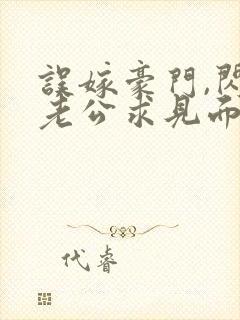 誤嫁豪門,閃
老公求見面
代睿